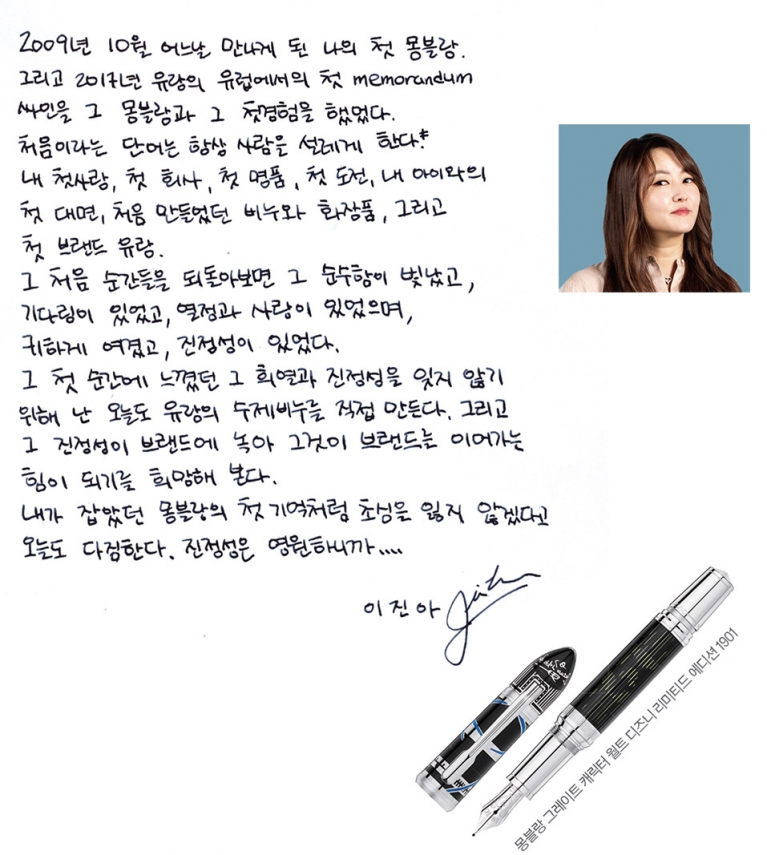 2009년 10월 어느날 만나게 된 나의 첫 몽블랑.
그리고 2017년 유랑의 유럽에서의 첫 memorandum
싸인을 그 몽블랑과 그 첫경험을 했었다.
처음이라는 단어는 항상 사람을 설레게 한다!
내 첫사랑, 첫 회사, 첫 명품, 첫 도전, 내 아이와의
첫 대면, 처음 만들었던 비누와 화장품, 그리고
첫 브랜드 유랑.
그 처음 순간들을 되돌아보면 그 순수함이 빛났고,
기다림이 있었고, 열정과 사랑이 있었으며,
귀하게 여겼고, 진정성이 있었다.
그 첫 순간에 느꼈던 그 희열과 진정성을 잊지 않기
위해 난 오늘도 유랑의 수제비누를 직접 만든다. 그리고
그 진정성이 브랜드에 녹아 그것이 브랜드를 이어가는
힘이 되기를 희망해 본다.
내가 잡았던 몽블랑의 첫 기억처럼 초심을 잃지 않겠다고
오늘도 다짐한다. 진정성은 영원하니까....
이진아
몽블랑 그레이트 캐릭터 월트 디즈니 리미티드 에디션 1901